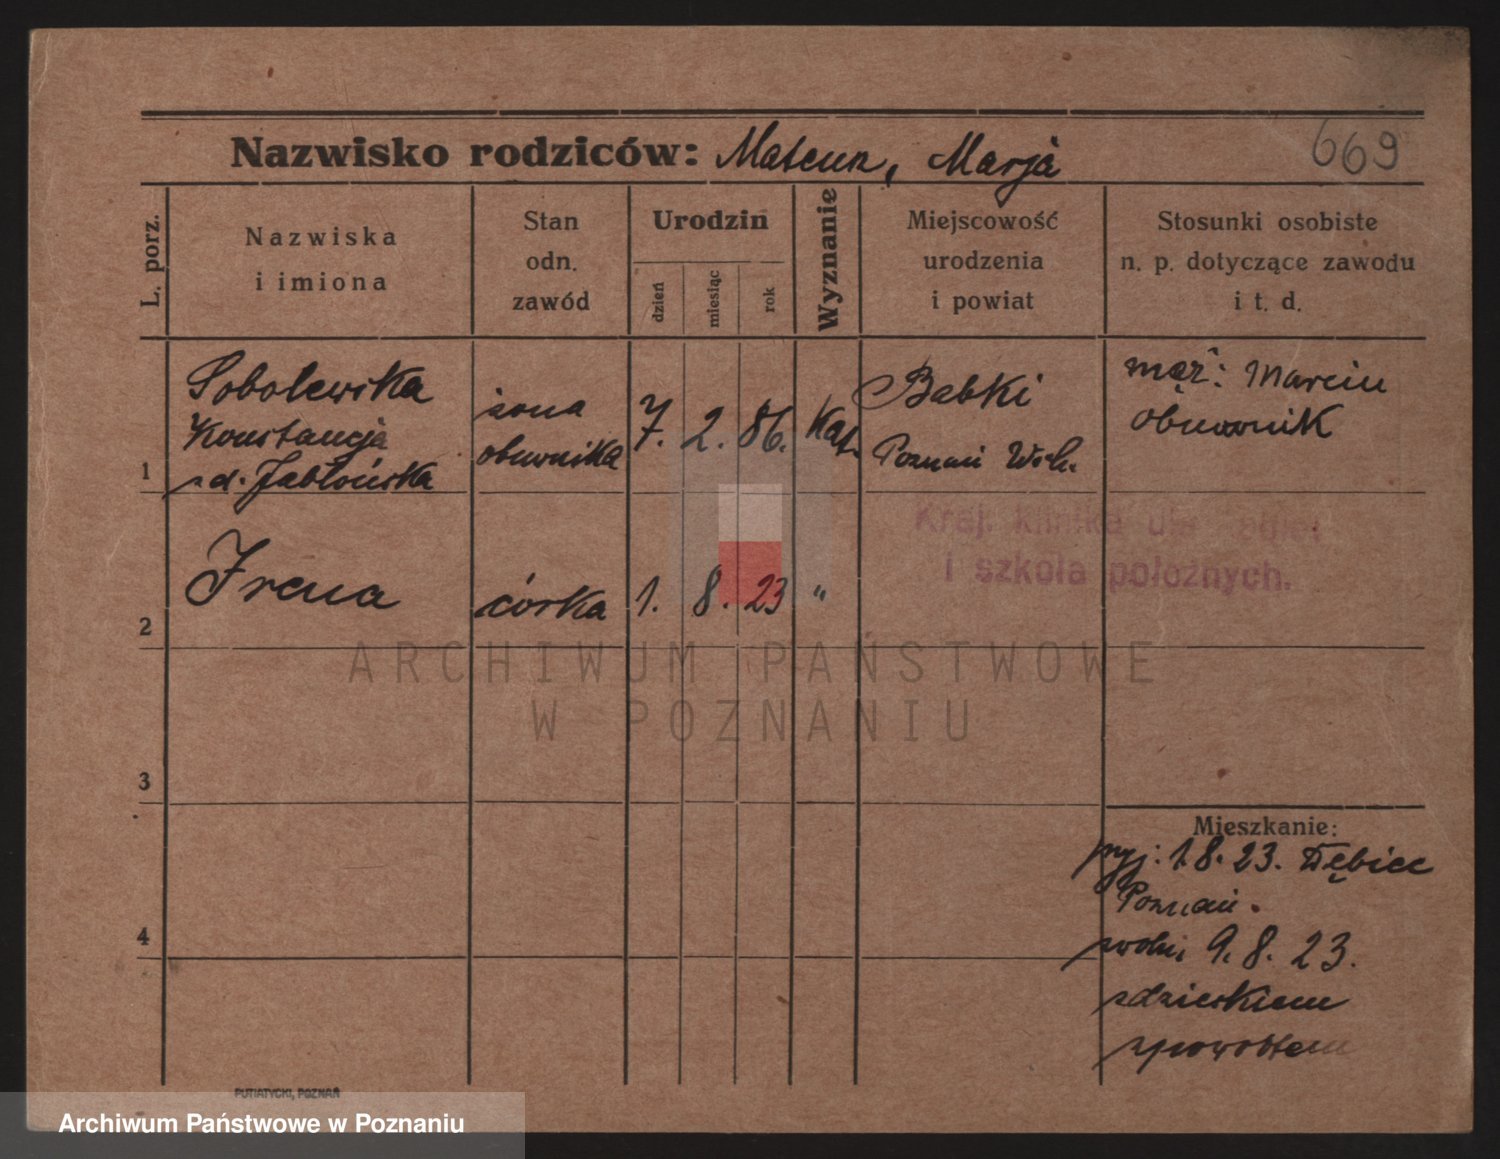 Nazwisko rodziców: Mateusz, Marja
669
L. porz.
Nazwiska
i imiona
Stan
odn.
zawód
Urodzin
dzień
miesiąc
rok
Wyznanie
Miejscowość
urodzenia
i powiat
Stosunki osobiste
n. p. dotyczące zawodu
i t. d.
1
Sobolewska
Konstancja
zd. Jabłońska
żona
obuwnika
7. 2. 86.
Kat.
Babki
Poznań Wsch.
mąż: Marcin
obuwnik
Kraj. klinika dla kobiet
i szkoła położnych.
2
Irena
córka
1. 8. 23
"
ARCHIWUM PAŃSTWOWE
W POZNANIU
3
4
Mieszkanie:
przyj: 1.8.23. Dębiec
Poznań.
zwoln. 9.8.23.
zdzieckiem
zpowrotem
PUTIATYCKI, POZNAŃ
Archiwum Państwowe w Poznaniu